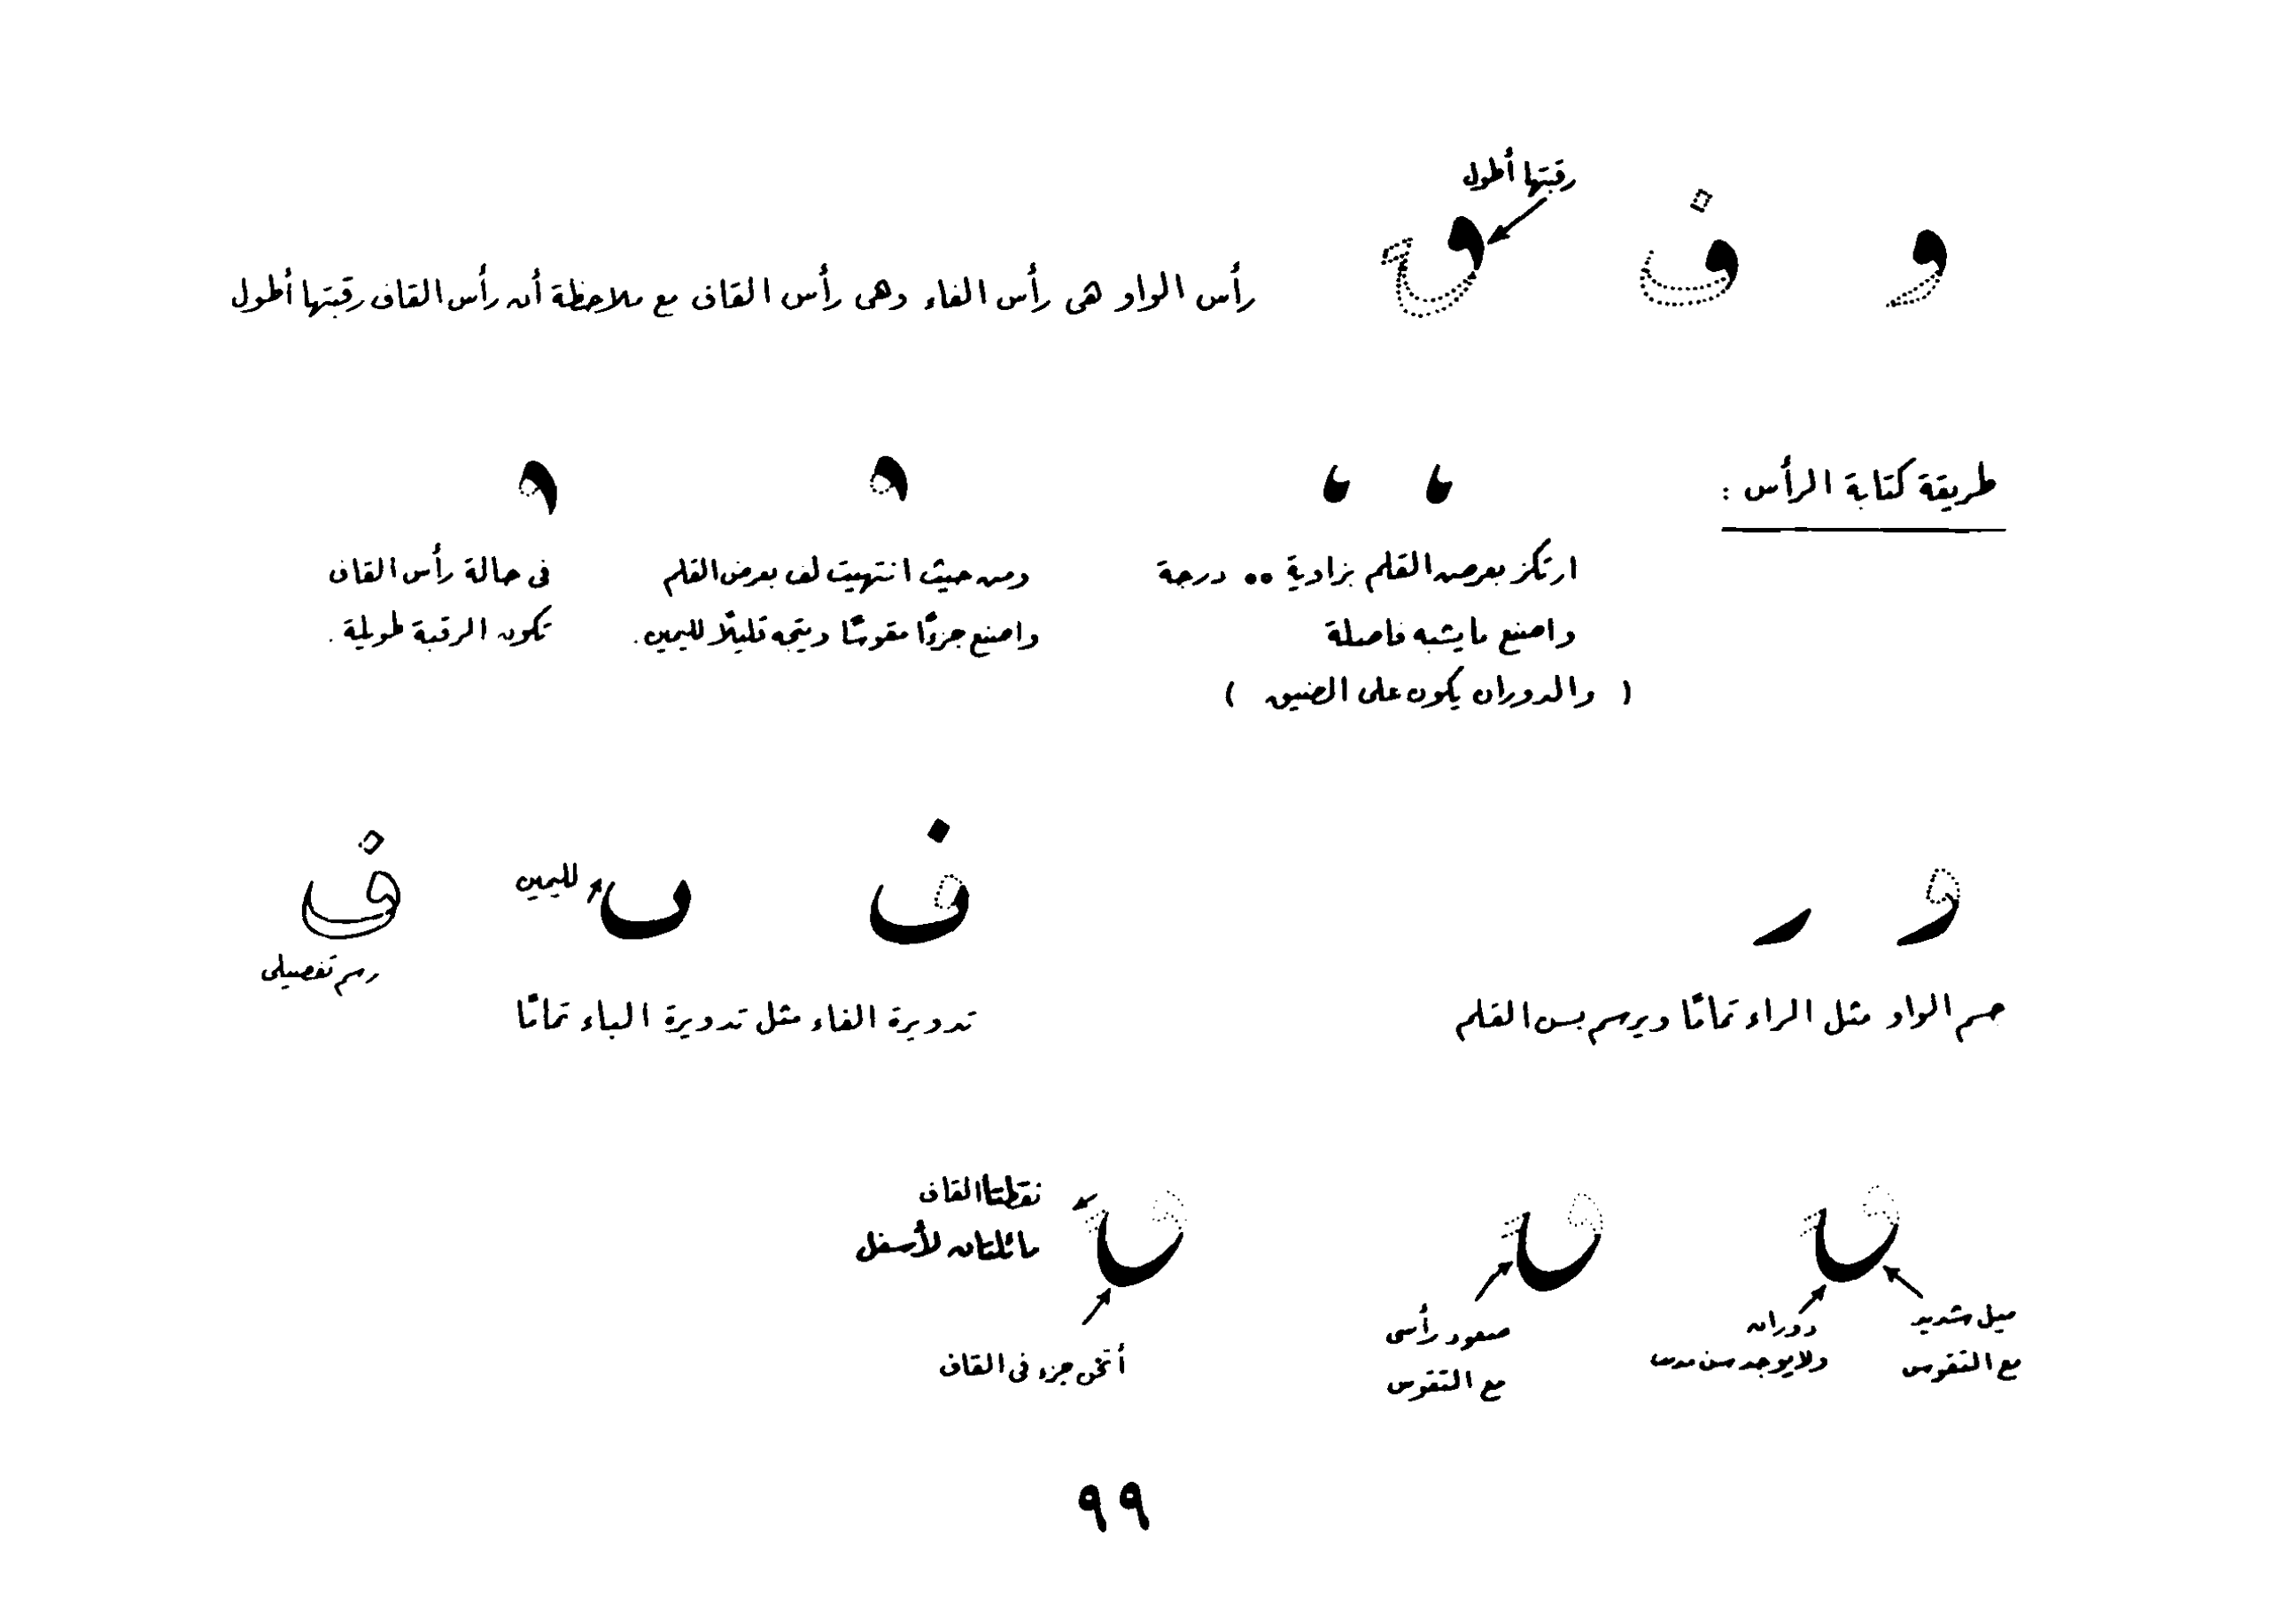 رقبتها أطول
و ف ق
رأس الواو هى رأس الفاء وهى رأس القاف مع ملاحظة أن رأس القاف رقبتها أطول
طريقة كتابة الرأس :
ارتكز بعرض القلم بزاوية ٥٥ درجة
واصنع ما يشبه فاصلة
( والدوران يكون على الضيق )
ومن حيث انتهيت لف بعرض القلم
واصنع جزءًا مقوسًا ويتجه قليلًا لليمين .
فى حالة رأس القاف
تكون الرقبة طويلة .
و ر
جسم الواو مثل الراء تمامًا ويرسم بسن القلم
ف
لليمين
ف
رسم تفصيلى
تدويرة الفاء مثل تدويرة الباء تمامًا
ميل شديد
مع التقوس
دوران
ولا يوجد سن مدبب
صعود رأسى
مع التقوس
نقطتا القاف
مائلتان لأسفل
أتخن جزء فى القاف
٩٩